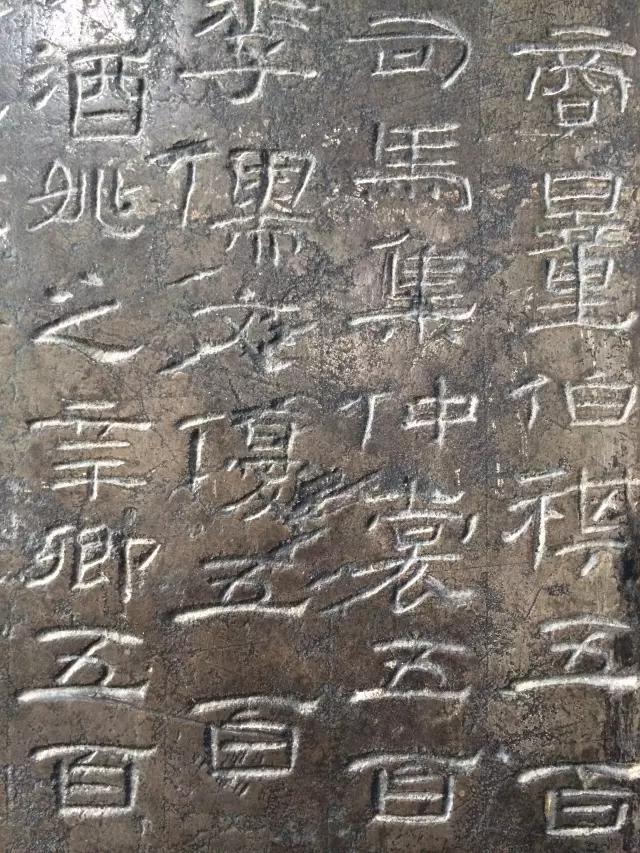 商量伯祺五百
司馬集仲裳五百
李儒文優五百
酒姚之辛卿五百